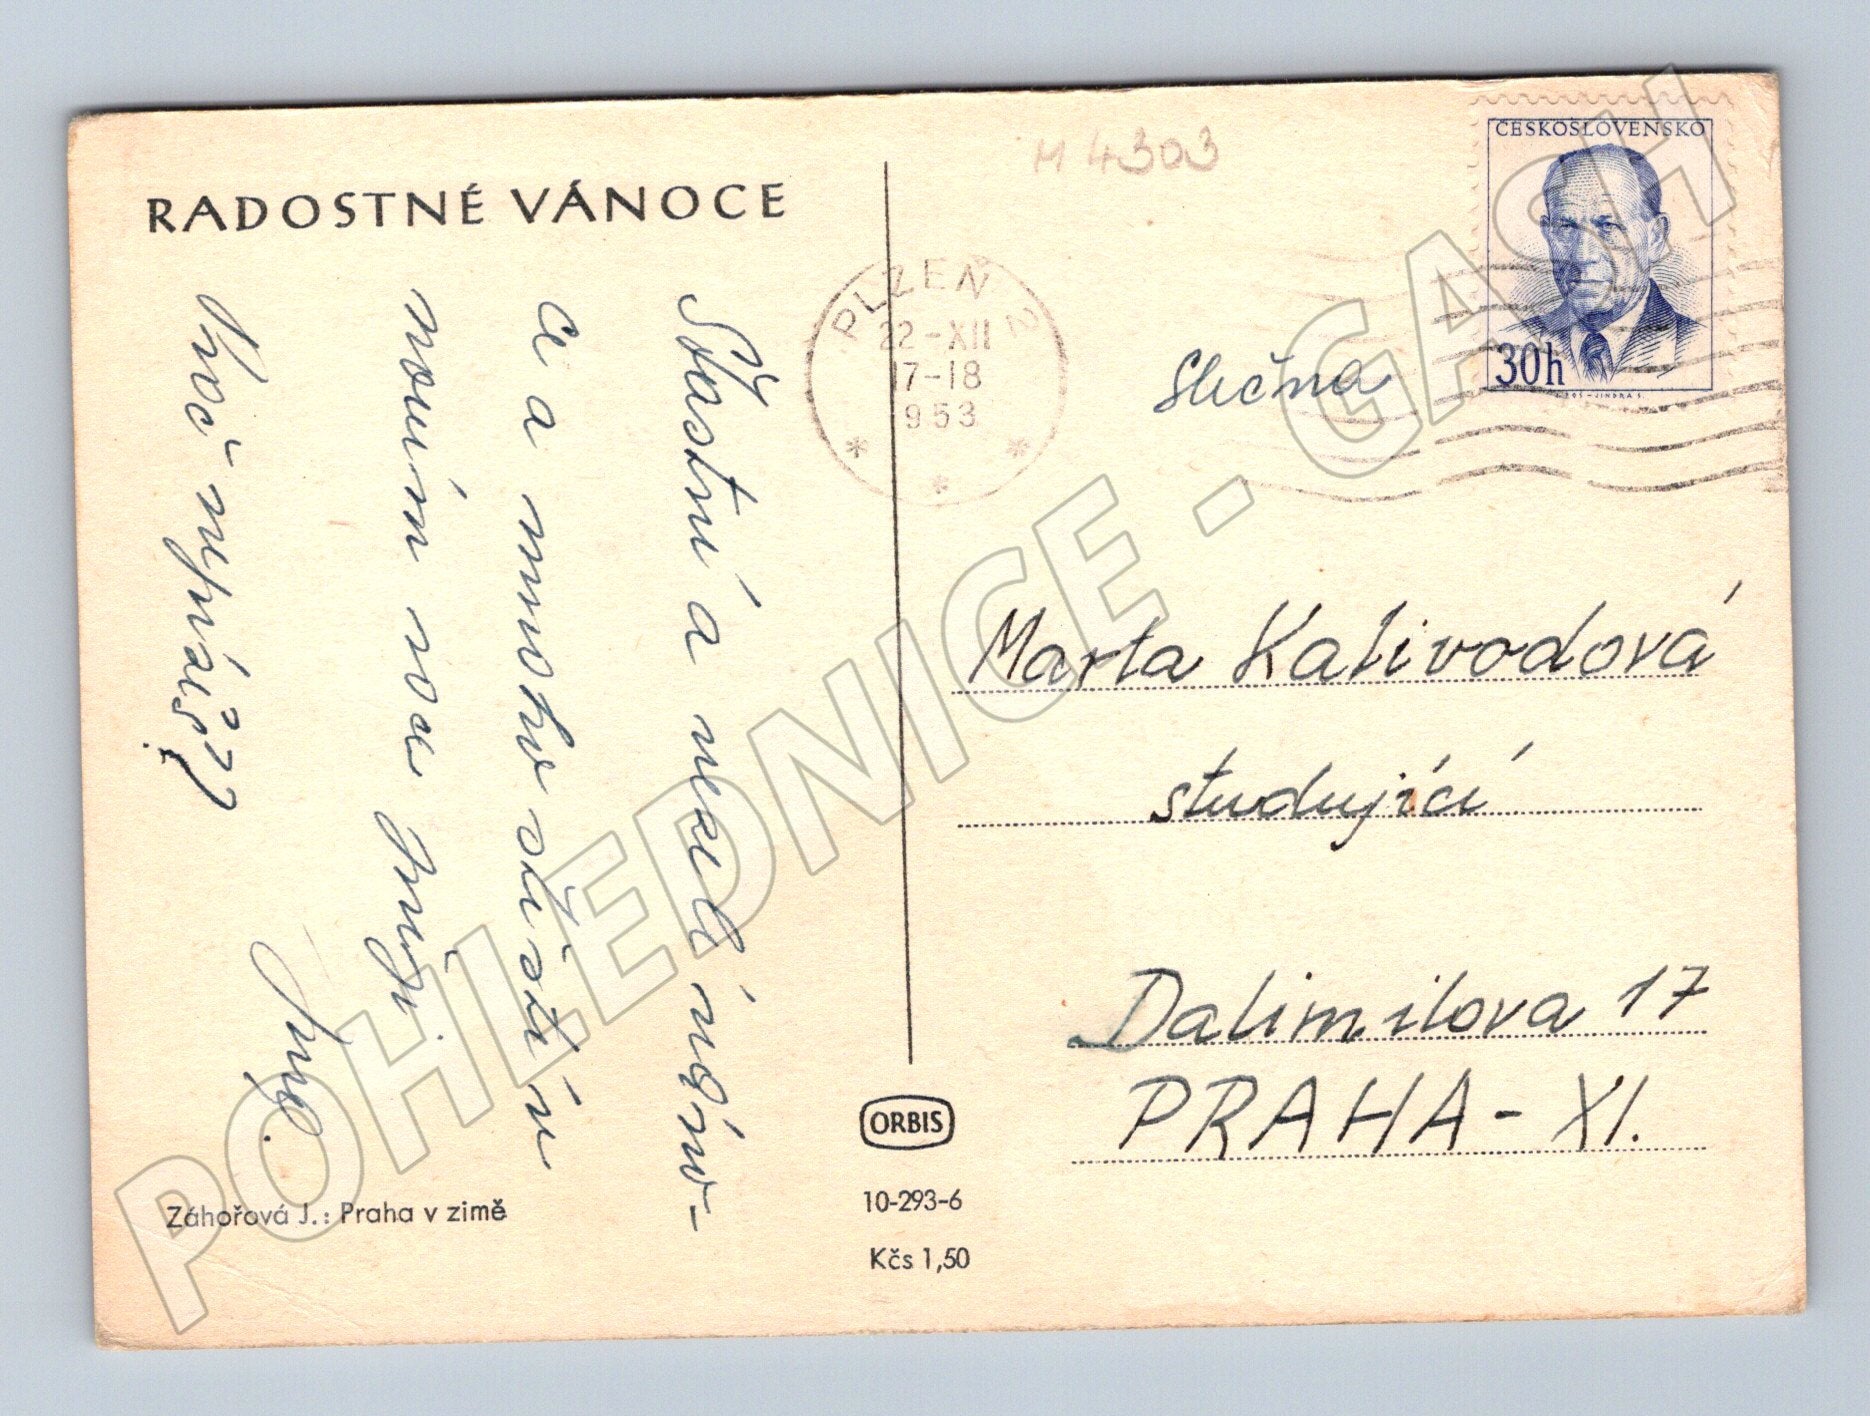 M 4303
ČESKOSLOVENSKO
30h
RADOSTNÉ VÁNOCE
PLZEŇ 2
22-XII
17-18
953
Šťastné a veselé váno-
ce a mnoho štěstí v
novém roce přeje
Proč nepíšeš?
Slečna
Marta Kalivodová
studující
Dalimilova 17
PRAHA - XI.
ORBIS
10-293-6
Kčs 1,50
Záhořová J.: Praha v zimě
POHLEDNICE - GASH